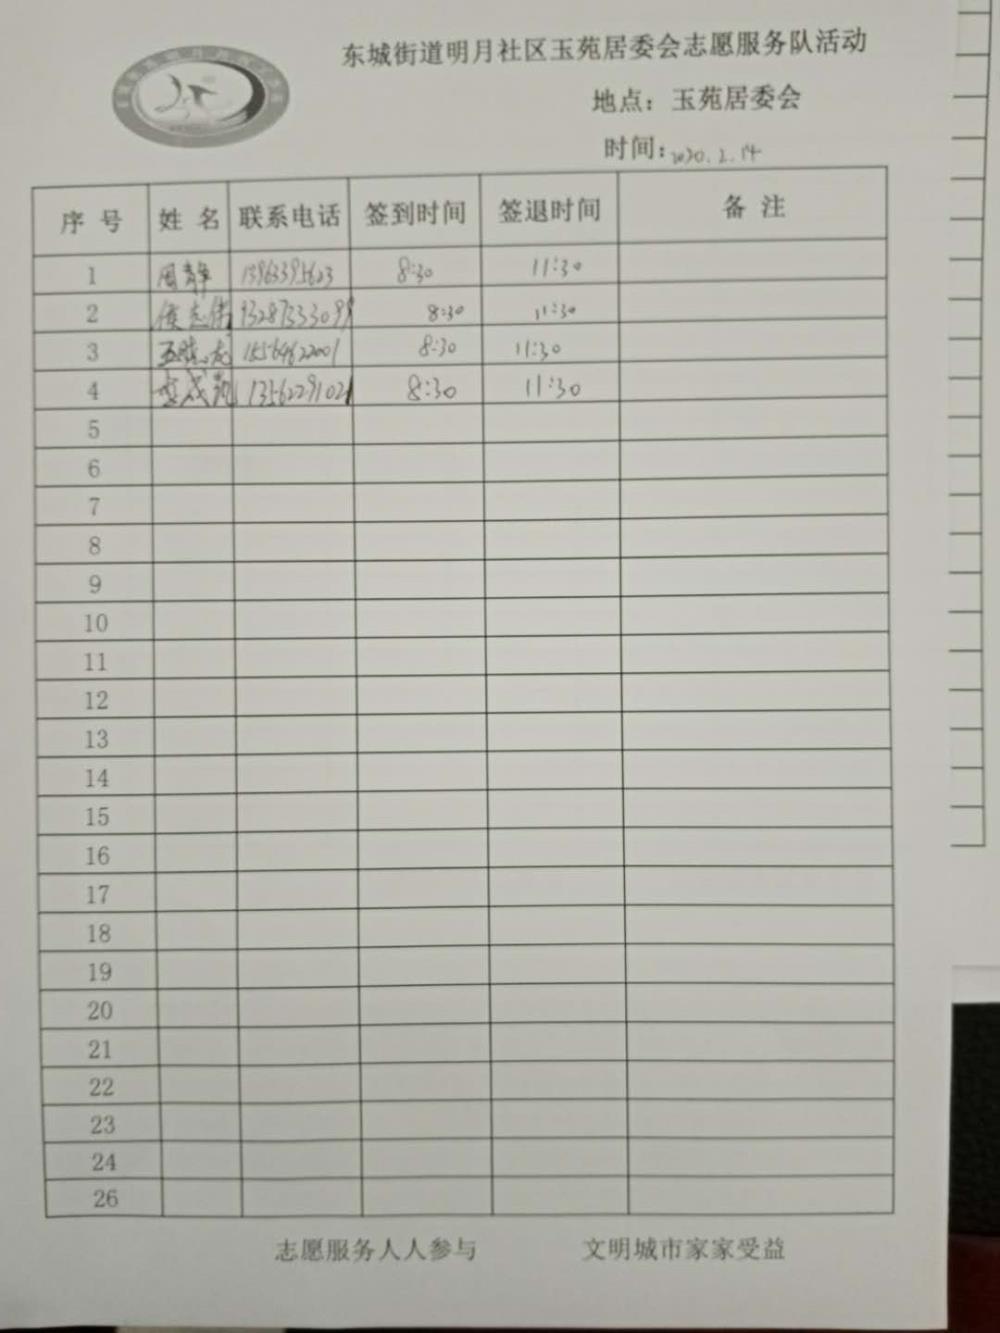 东城街道明月社区玉苑居委会志愿服务队活动
地点：玉苑居委会
时间：2020.2.14
序号 姓名 联系电话 签到时间 签退时间 备注
1 周静 13963395623 8:30 11:30
2 侯志伟 13287333099 8:30 11:30
3 15564622001 8:30 11:30
4 13562291021 8:30 11:30
5
6
7
8
9
10
11
12
13
14
15
16
17
18
19
20
21
22
23
24
26
志愿服务人人参与 文明城市家家受益